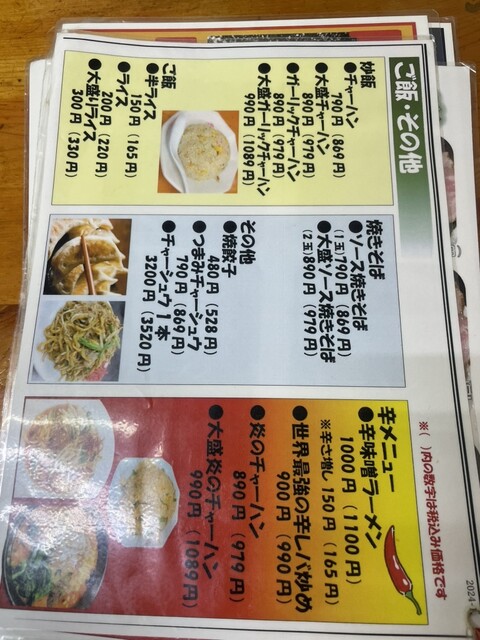 ご飯・その他
炒飯
●チャーハン
790円(869円)
●大盛チャーハン
890円(979円)
●ガーリックチャーハン
890円(979円)
●大盛ガーリックチャーハン
990円(1089円)
ご飯
●半ライス
150円(165円)
●ライス
200円(220円)
●大盛りライス
300円(330円)
焼きそば
●ソース焼きそば
(1玉)790円(869円)
●大盛ソース焼きそば
(2玉)890円(979円)
その他
●焼餃子
480円(528円)
●つまみチャーシュウ
790円(869円)
●チャーシュウ1本
3200円(3520円)
※( )内の数字は税込み価格です
辛メニュー
●辛味噌ラーメン
1000円(1100円)
※辛さ増し150円(165円)
●世界最強の辛レバ炒め
900円(990円)
●炎のチャーハン
890円(979円)
●大盛炎のチャーハン
990円(1089円)
2024-